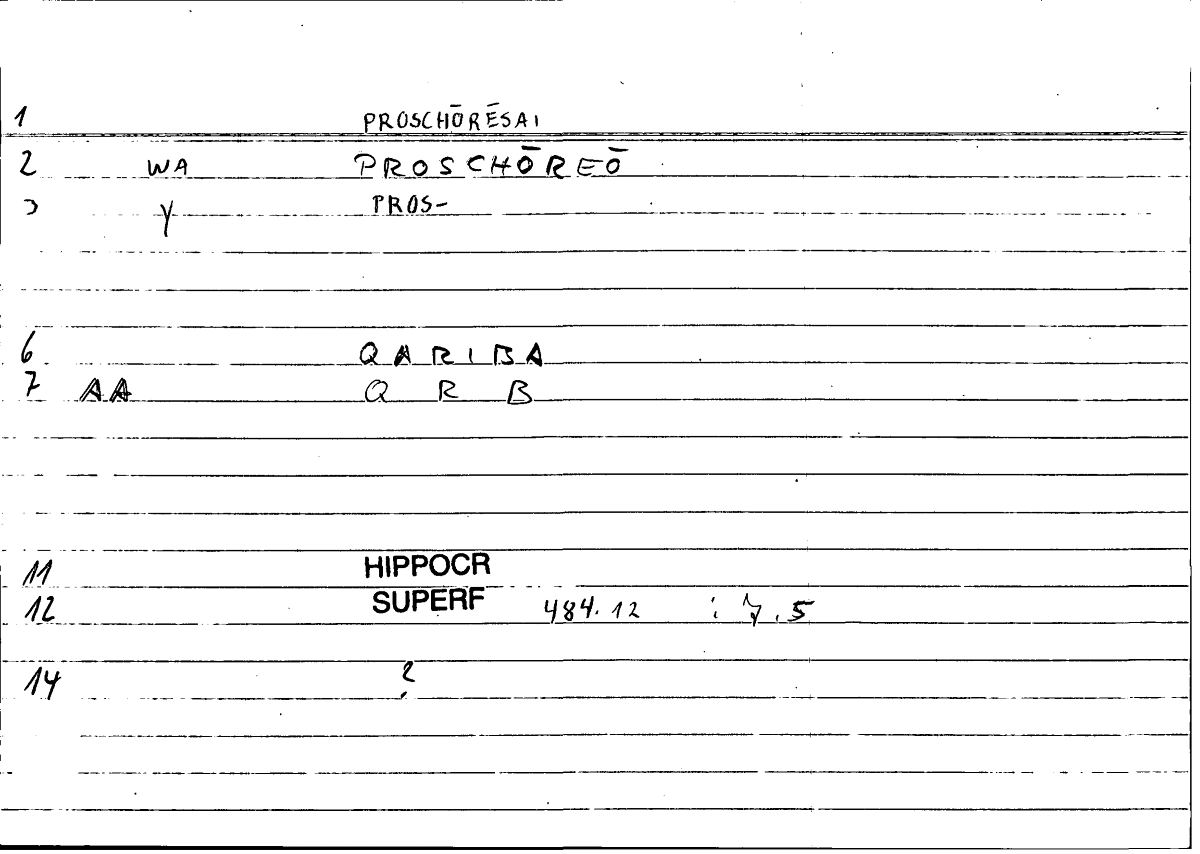 1 PROSCHŌRĒSAI
2 WA PROSCHŌREŌ
3 Y PROS-
6 QARIBA
7 AA Q R B
11 HIPPOCR
12 SUPERF 484.12 : 7.5
14 ?